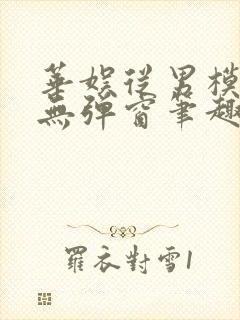 華娛從男模
無彈窗筆趣
羅衣對雪1